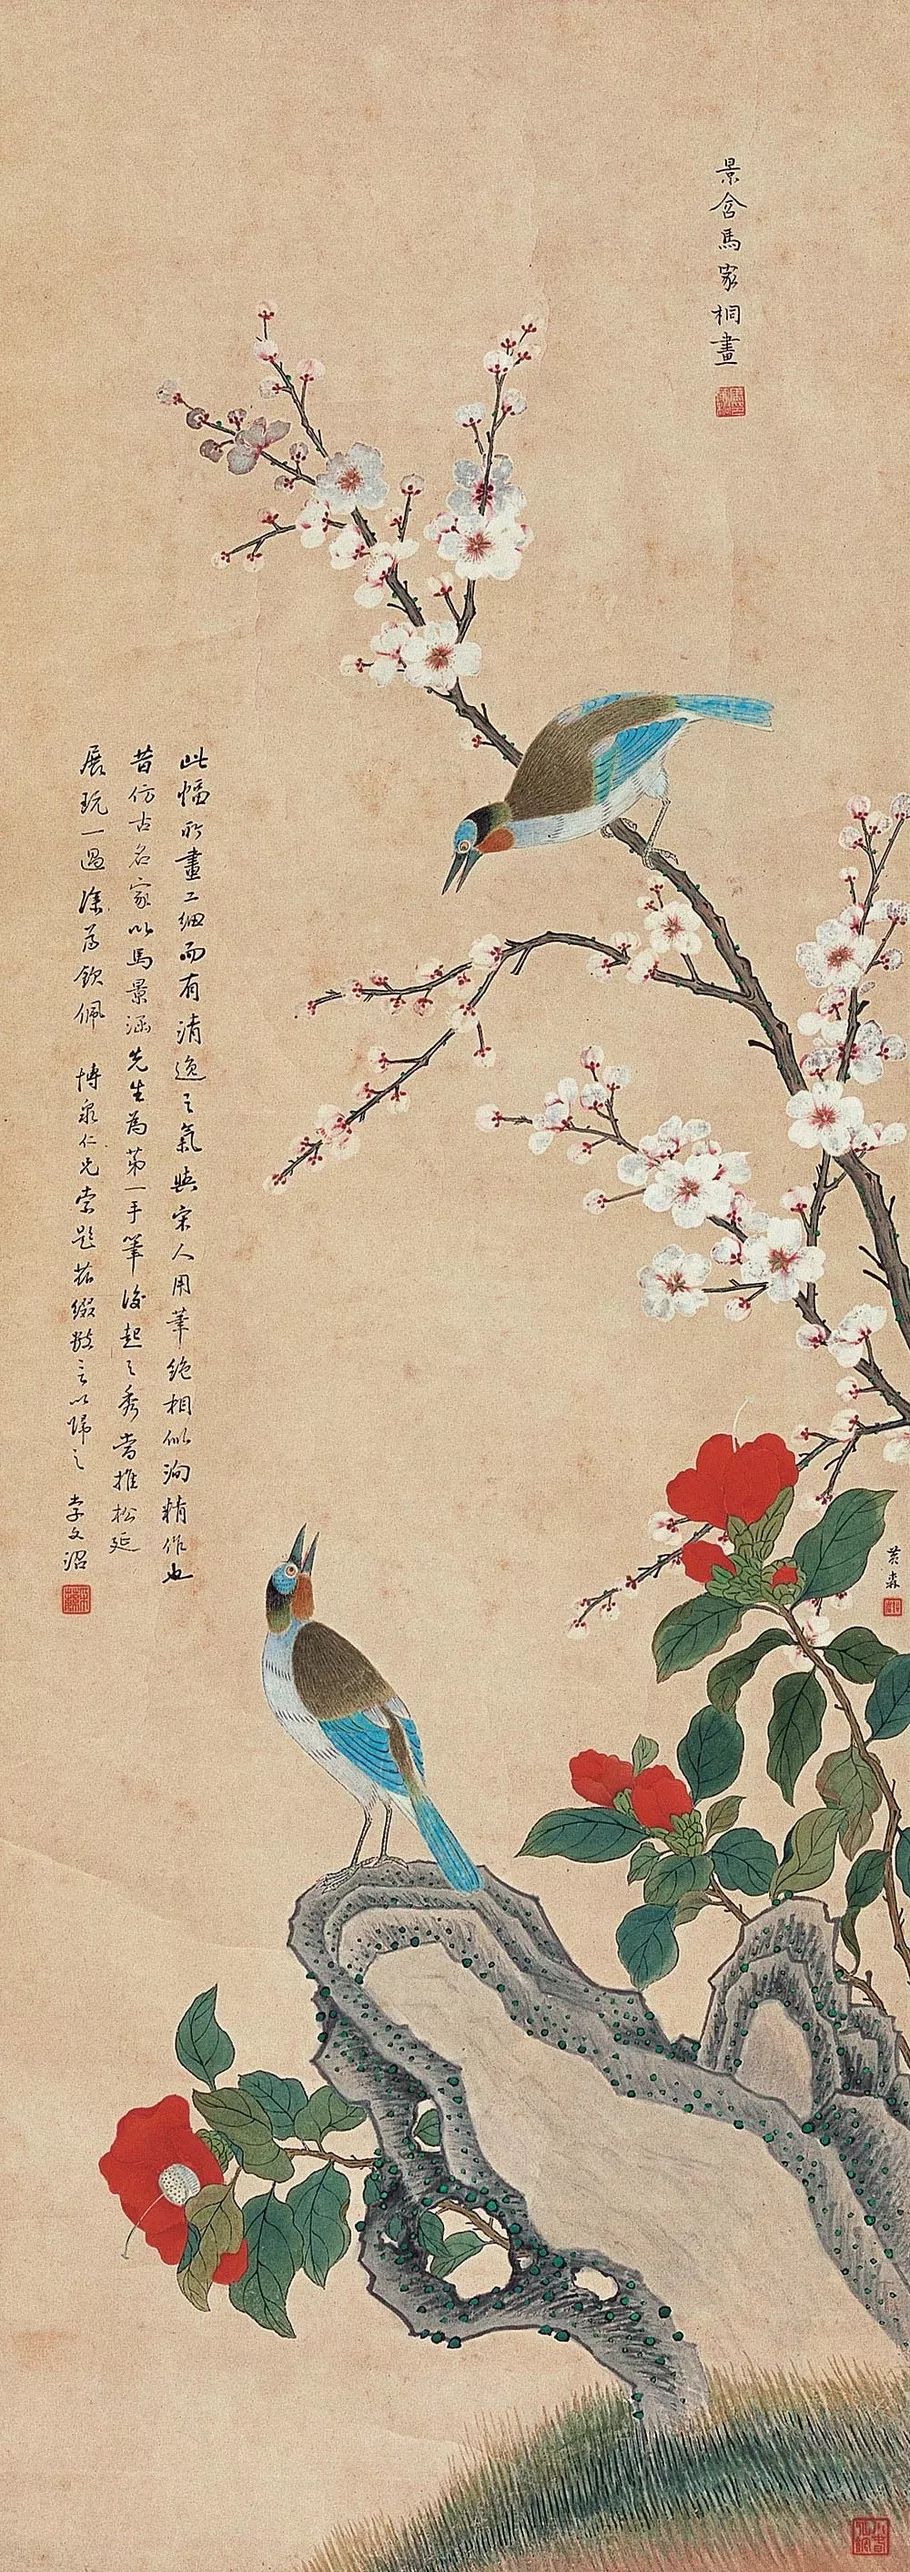 景含馬家桐畫
此幅所畫工細而有清逸之氣與宋人用筆絶相似洵精作也
昔仿古名家以馬景涵先生為第一手筆後起之秀當推松延
展玩一過深為欽佩 博泉仁兄索題茲綴數言以歸之 李文沼
黃森